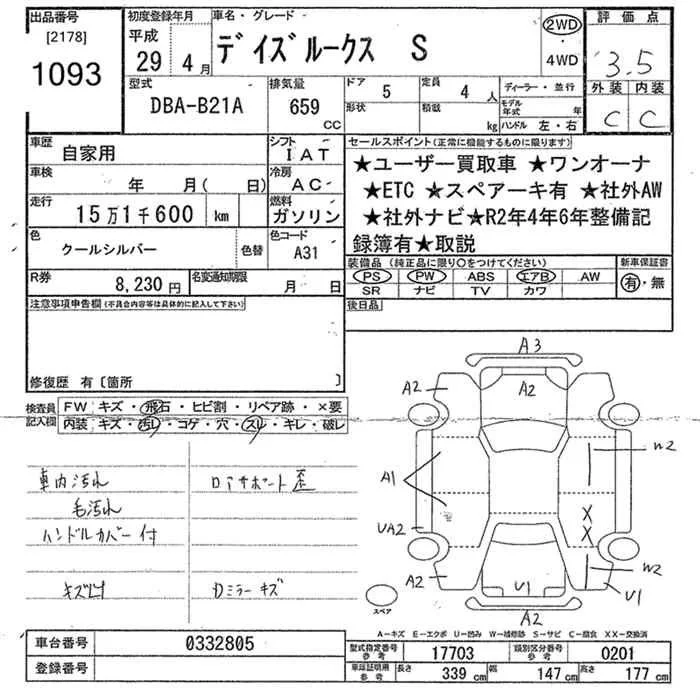 出品番号
[2178]
1093
初度登録年月
平成
29年 4月
車名・グレード
デイズルークス S
2WD
・
4WD
評価点
3.5
外装 内装
C C
型式
DBA-B21A
排気量
659
CC
ドア
5
定員
4 人
形状
積載
kg
ディーラー・並行
モデル年式 年
ハンドル 左・右
車歴
自家用
シフト
IAT
車検
年 月( 日)
冷房
AC
走行
15万1千600 km
燃料
ガソリン
色
クールシルバー
色替
色コード
A31
R券
8,230円
名変通知期限
月 日
セールスポイント(正常に機能するものに限ります)
★ユーザー買取車 ★ワンオーナ
★ETC ★スペアーキ有 ★社外AW
★社外ナビ★R2年4年6年整備記
録簿有★取説
装備品(純正品に限り○をつけてください)
PS PW ABS エアB AW
SR ナビ TV カワ
新車保証書
有・無
後日品
注意事項申告欄(不具合内容等は具体的に記入して下さい)
修復歴 有〔箇所 〕
検査員記入欄
FW キズ・飛石・ヒビ割・リペア跡・×要
内装 キズ・汚れ・コゲ・穴・スレ・キレ・破レ
車内汚れ
毛汚れ
ハンドルカバー付
キズ凹
ロアサポート歪
Dミラーキズ
A3
A2
A2
A1
W2
X
X
UA2
W2
A2
U1
U1
A2
スペア
A-キズ E-エクボ U-凹み W-補修跡 S-サビ C-腐食 XX-交換済
車台番号
0332805
登録番号
型式指定番号
参考
17703
類別区分番号
参考
0201
車庫証明用
参考
長さ 339 cm
幅 147 cm
高さ 177 cm